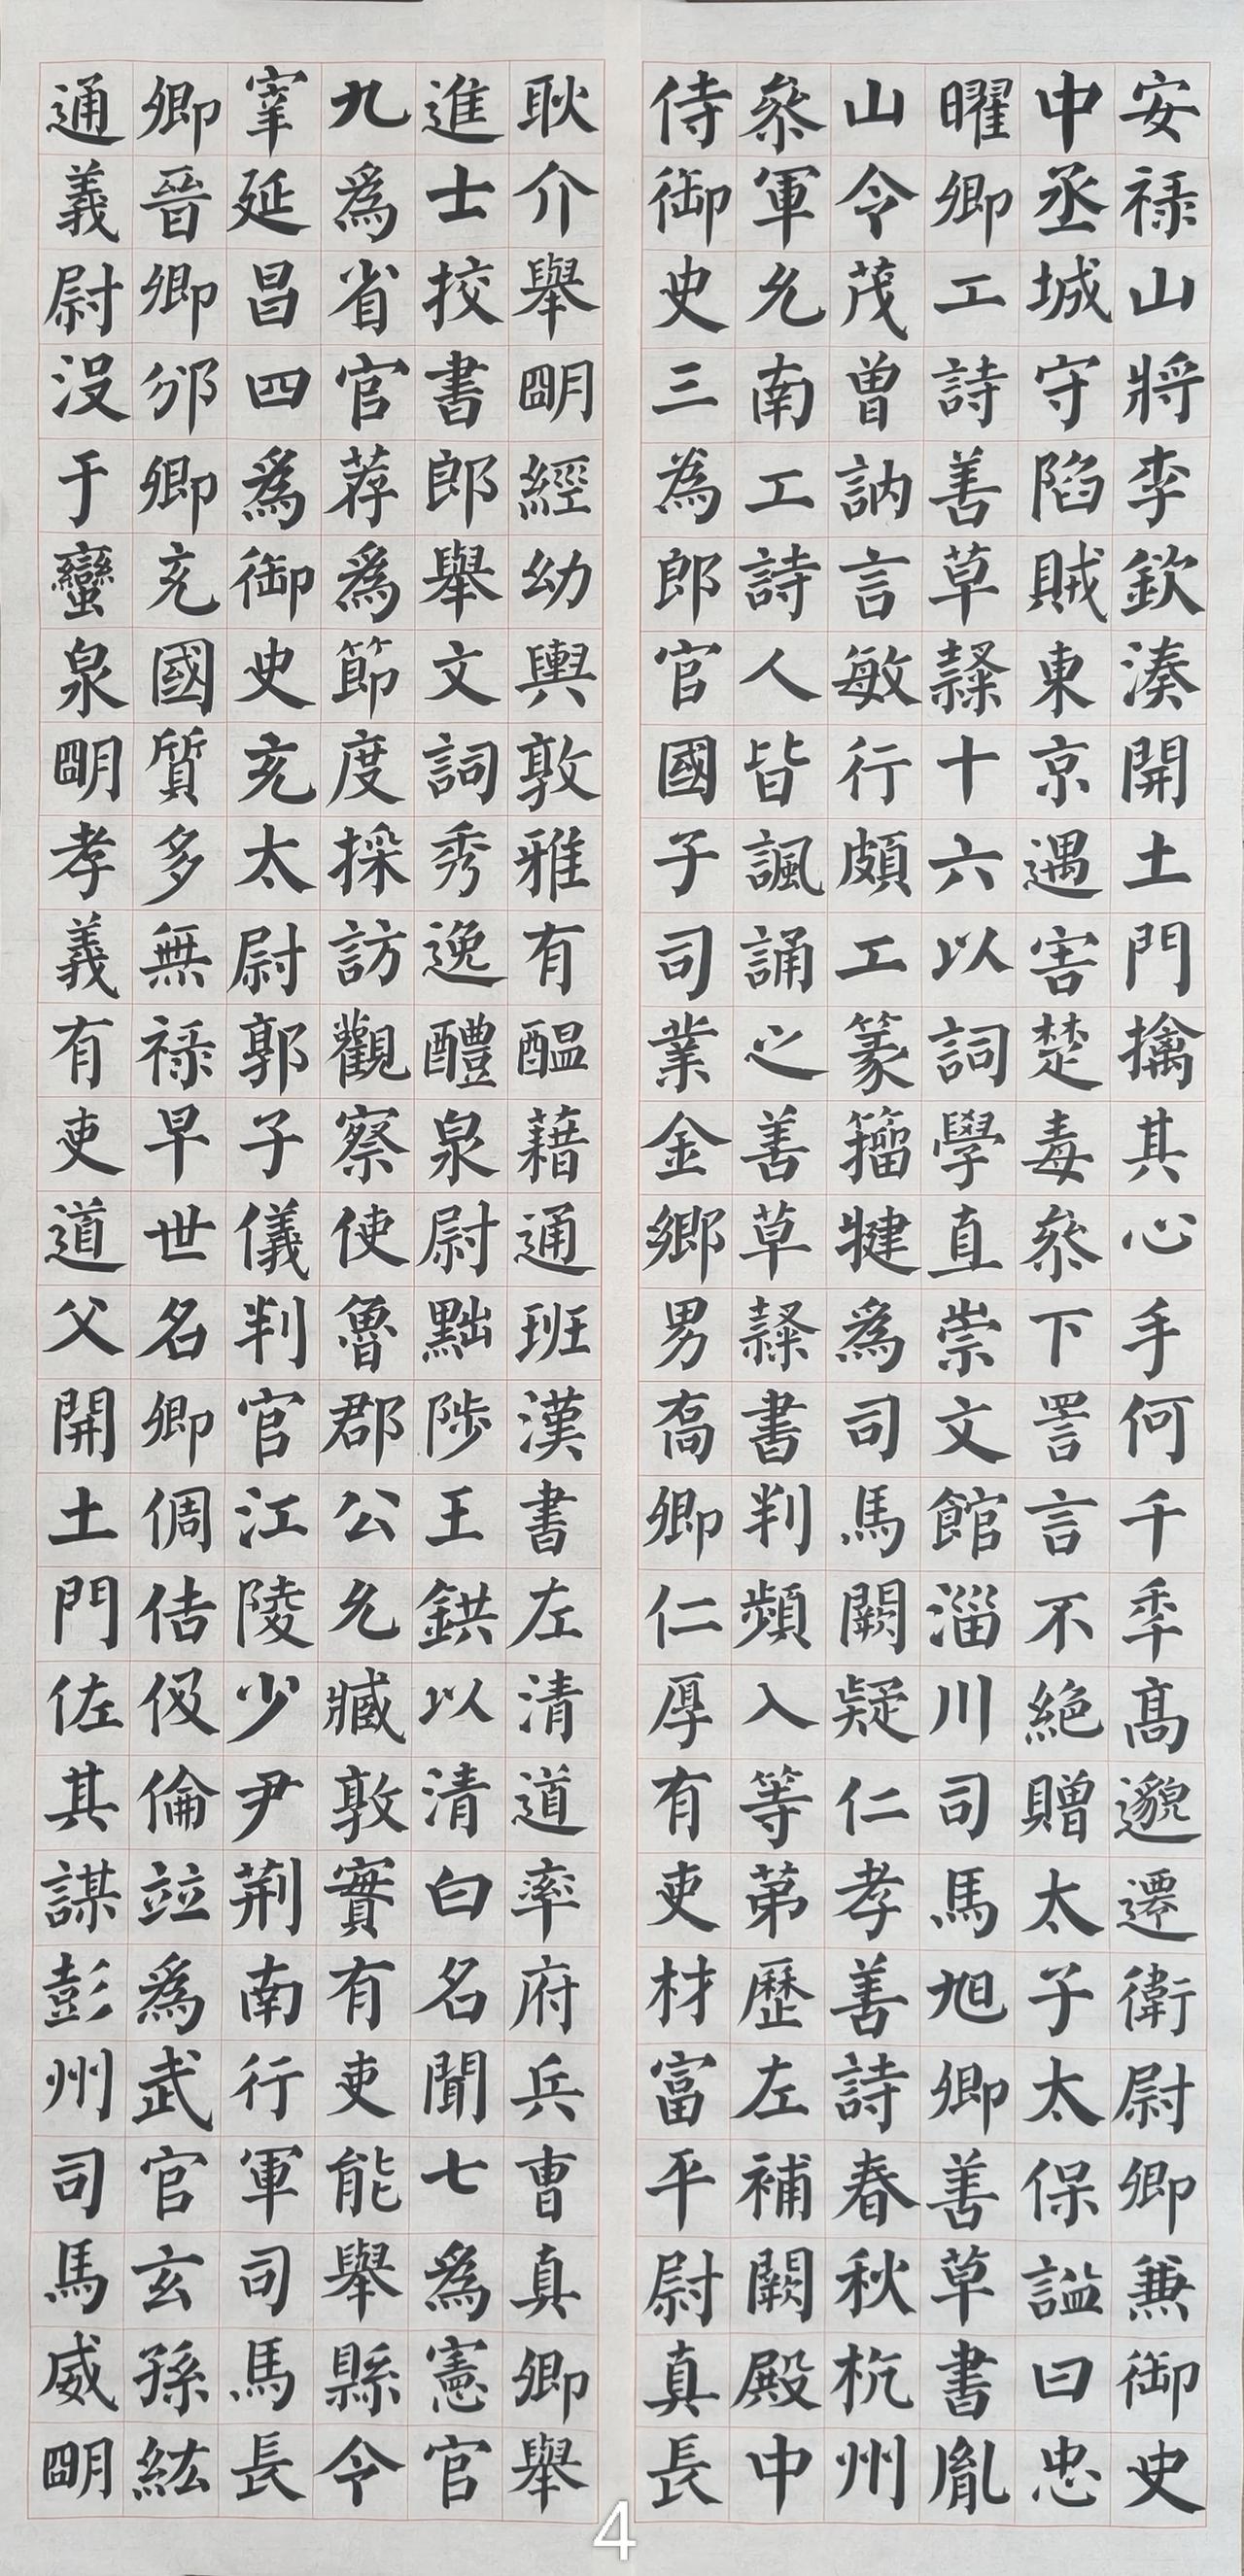 安禄山將李欽湊開土門擒其心手何千秊髙邈遷衛尉卿兼御史
中丞城守陷賊東京遇害楚毒叅下詈言不絕贈太子太保謚曰忠
曜卿工詩善草隸十六以詞學直崇文館淄川司馬旭卿善草書胤
山令茂曾訥言敏行頗工篆籀犍為司馬闕疑仁孝善詩春秋杭州
叅軍允南工詩人皆諷誦之善草隸書判頻入等第歷左補闕殿中
侍御史三為郎官國子司業金鄉男喬卿仁厚有吏材富平尉真長
耿介舉朙經幼輿敦雅有醖藉通班漢書左清道率府兵曹真卿舉
進士挍書郎舉文詞秀逸醴泉尉黜陟王鉷以清白名聞七為憲官
九為省官荐為節度採訪觀察使魯郡公允臧敦實有吏能舉縣令
宰延昌四為御史充太尉郭子儀判官江陵少尹荊南行軍司馬長
卿晉卿邠卿充國質多無禄早世名卿倜佶伋倫竝為武官玄孫紘
通義尉沒于蠻泉朙孝義有吏道父開土門佐其謀彭州司馬威朙
4